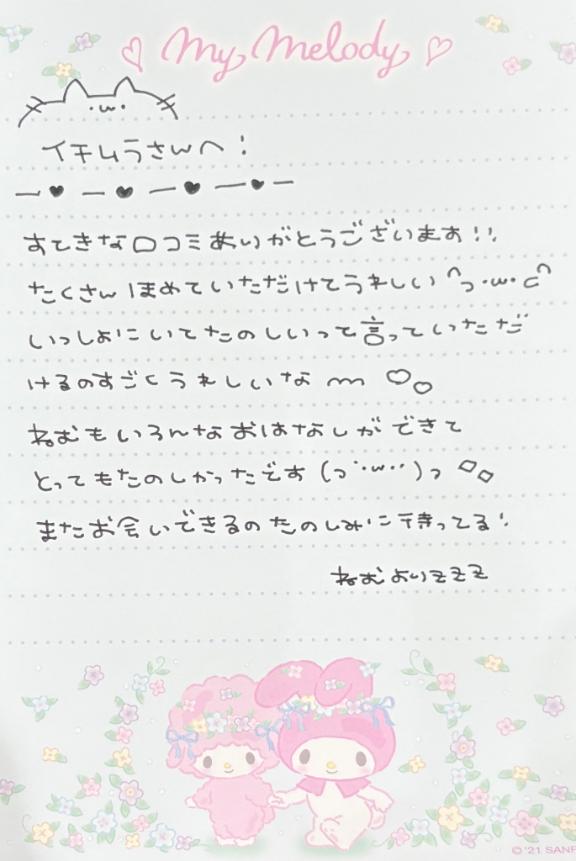 ♡ My Melody ♡
・ω・
イチムラさんへ！
ー♥ー♥ー♥ー♥ー
すてきな口コミありがとうございます!!
たくさんほめていただけてうれしい ^っ・ω・c^
いっしょにいてたのしいって言っていただ
けるのすごくうれしいな 〰 ♡♡
ねむもいろんなおはなしができて
とってもたのしかったです (っ˙・ω・˙)っ ◇◇
またお会いできるのたのしみに待ってる！
ねむよりzzz
© '21 SANR